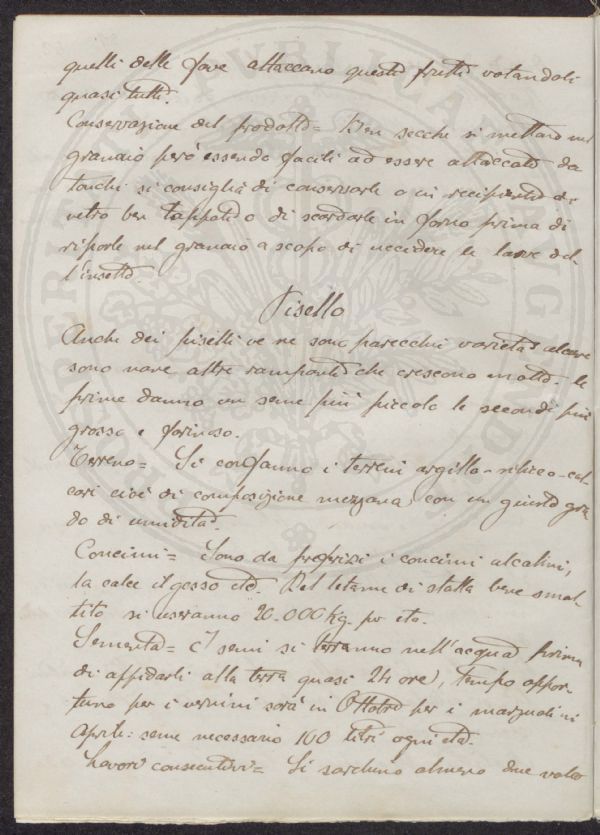 quelli delle fave attaccano questi frutti votandoli
quasi tutti.
Conservazione del prodotto = Ben secche si mettano nel
granaio però essendo facili ad essere attaccate da
tonchi si consiglia di conservarle o in recipienti di
vetro ben tappati o di scardarle in forno prima di
riporle nel granaio a scopo di uccidere le larve del
l'insetto.
Pisello
Anche dei piselli ve ne sono parecchie varietà alcune
sono nane altre rampanti che crescono molto - le
prime danno un seme più piccolo le secondi più
grosso e farinoso.
Terreno = Si confanno i terreni argillo-siliceo-cal
cari cioè di composizione mezzana con un giusto gra
do di umidità.
Concimi = Sono da preferirsi i concimi alcalini,
la calce il gesso etc. Del letame di stalla bene smal-
tito si useranno 20.000 Kg. per eta.
Sementa = I semi si terranno nell'acqua prima
di affidarli alla terra quasi 24 ore, tempo oppor-
tuno per i vernini sarà in Ottobre per i marzuoli in
Aprile: seme necessario 100 litri ogni eta.
Lavori consecutivi = Si sarchino almeno due volte
PUBLICAE
PROSPERITATI
AUGENDAE